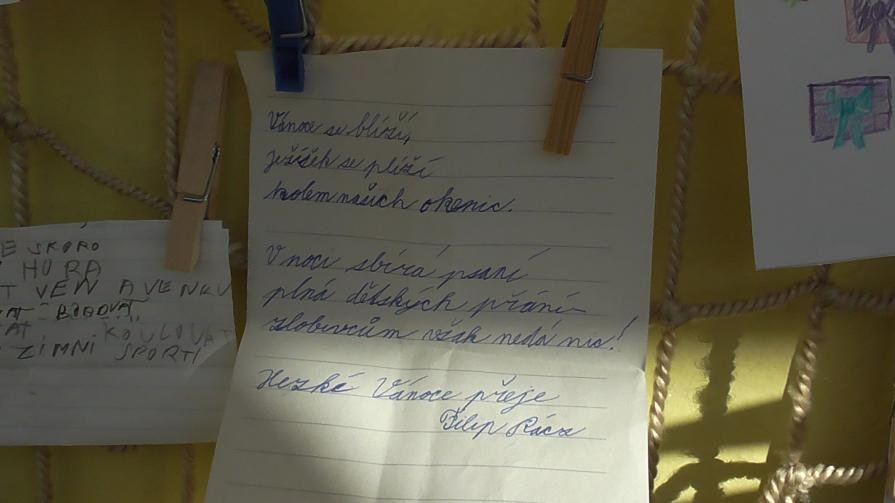 Vánoce se blíží,
ježíšek se plíží
kolem našich okenic.
V noci sbírá psaní
plná dětských přání–
zlobivcům však nedá nic!
Hezké Vánoce přeje
Filip Rácz
E SKORO
HURA
T VEN A VENKU
AT BOBOVAT,
AT KOULOVAT
ZIMNI SPORTI